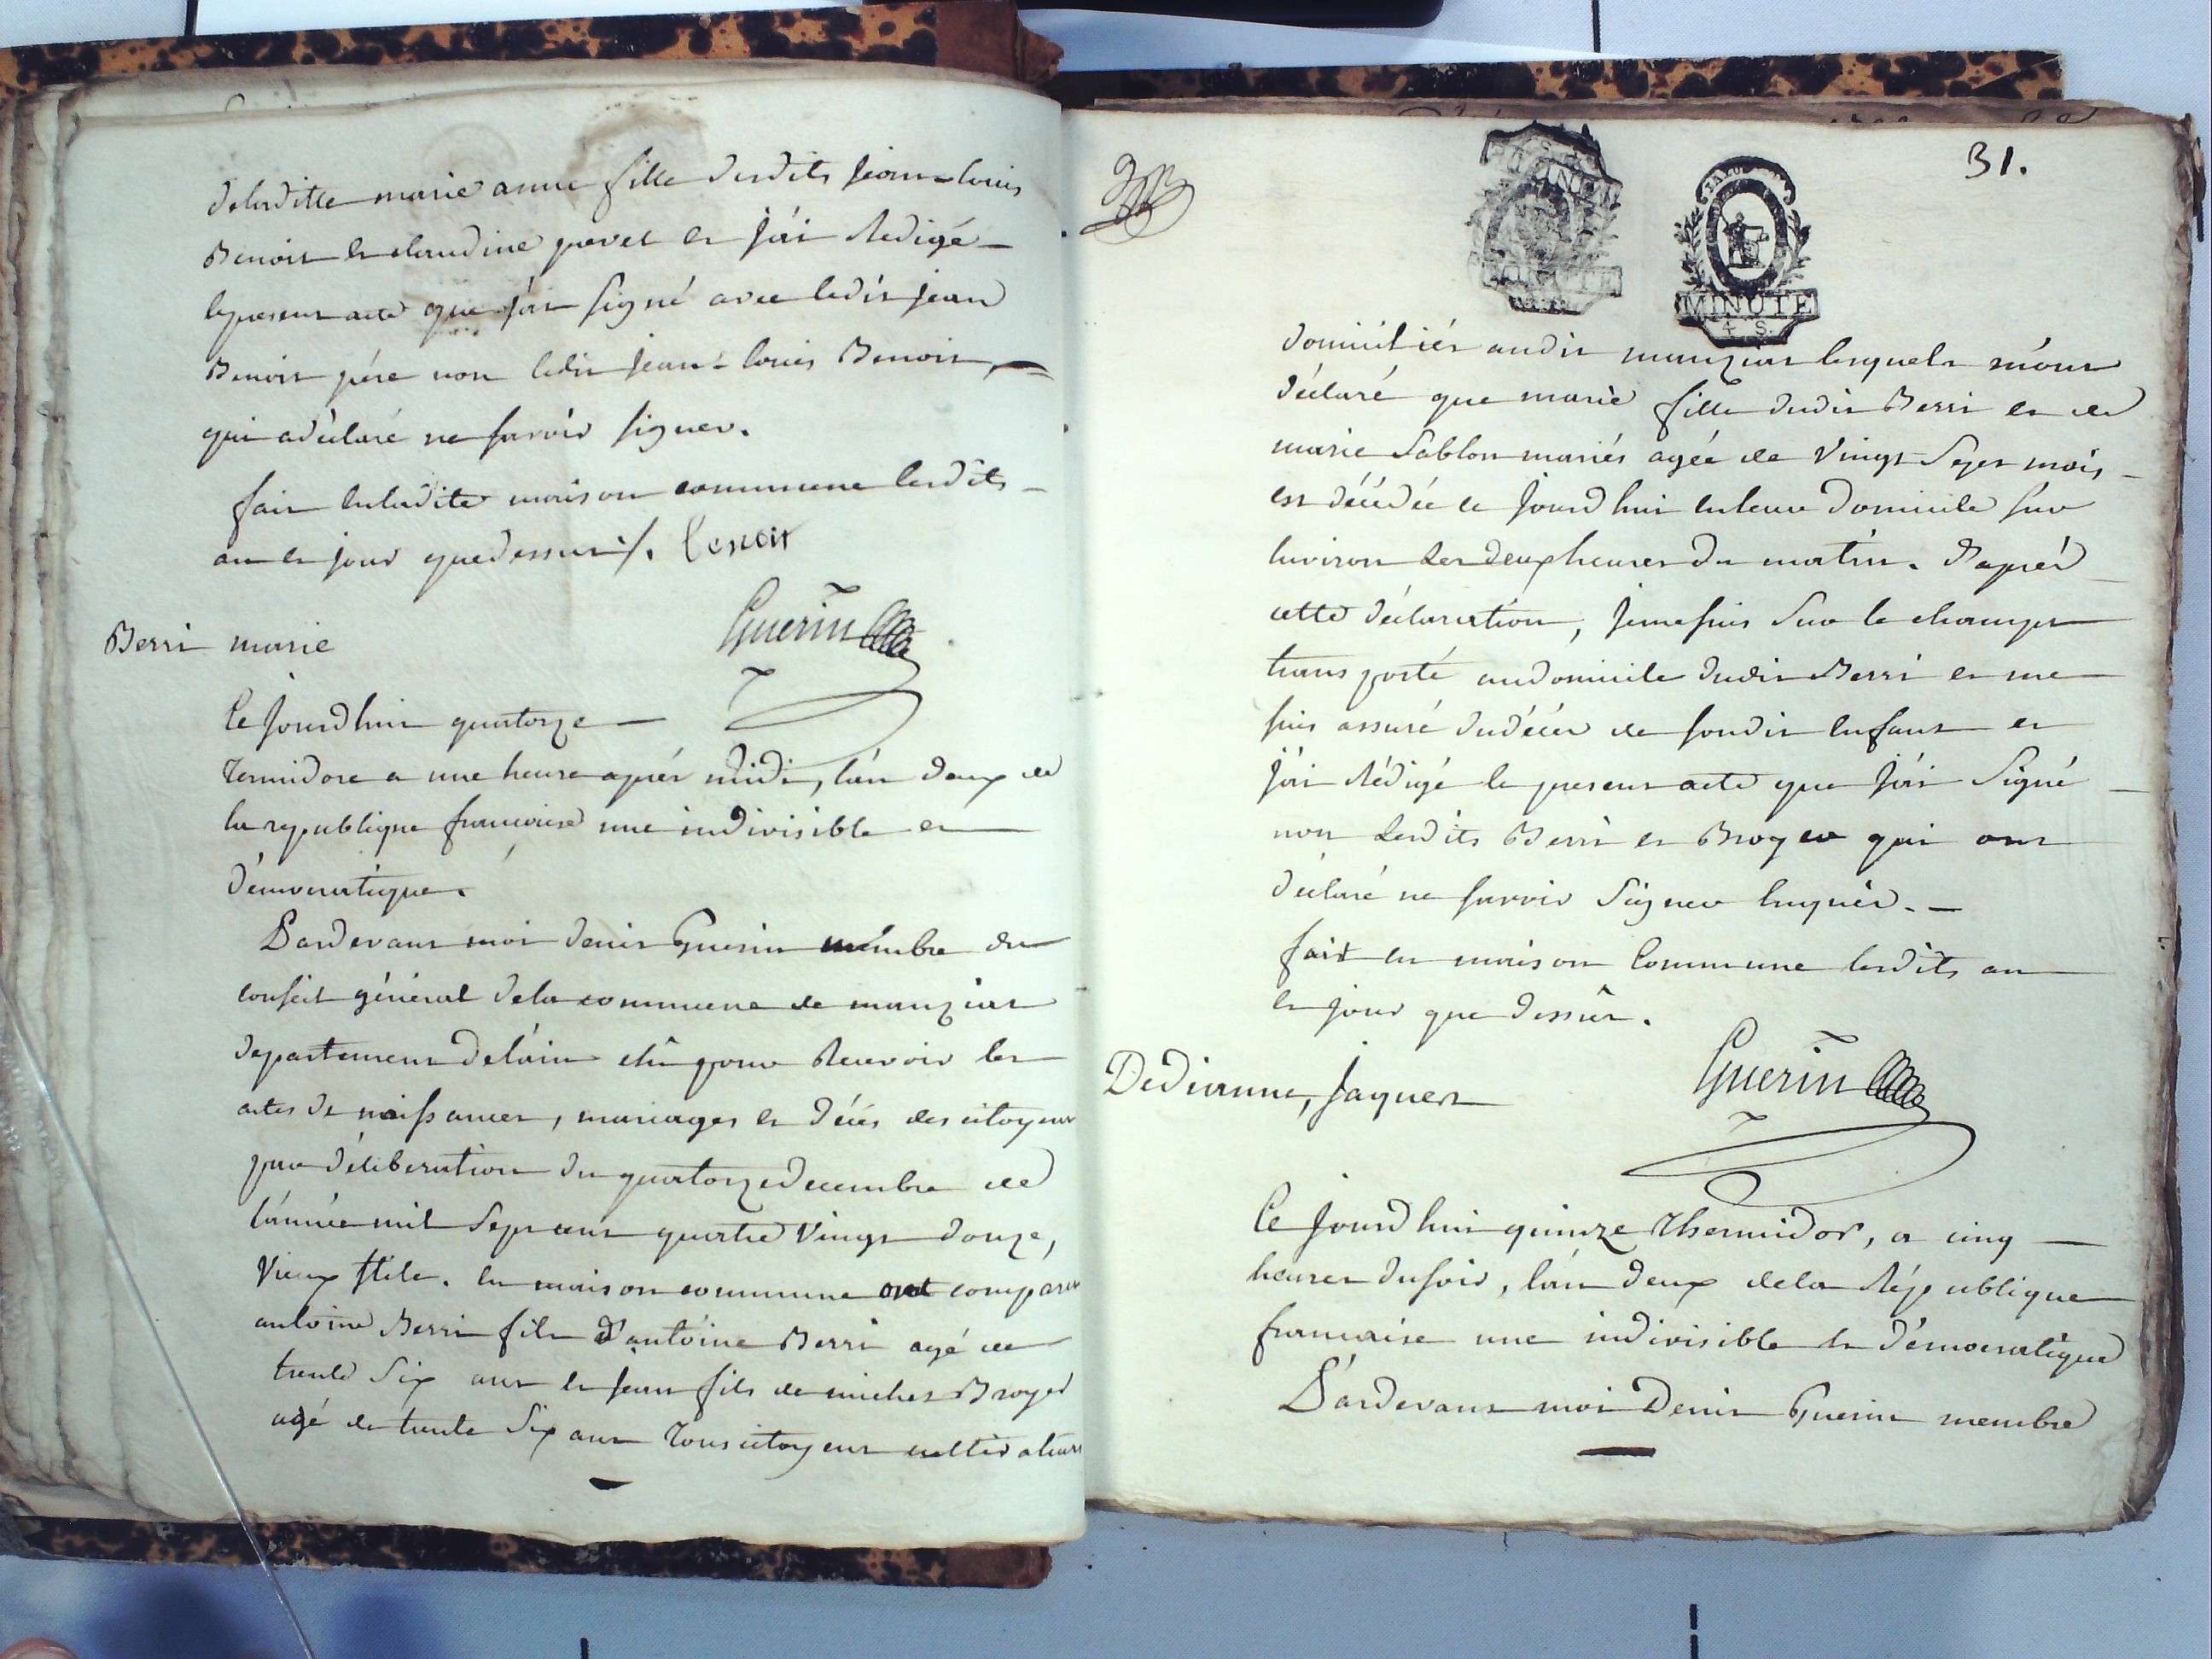 deladitte marie anne fille desdits jean-louis
Benoit et claudine pavet et j'ai redigé
le present acte que j'ai signé avec ledit jean
Benoit pére non ledit jean-louis Benoit,
qui a déclaré ne savoir signer.
fait en ladite maison commune lesdits
an et jour que dessus ./. Benoit
Guerin
Berri marie
Ce jourd'hui quatorze
termidore a une heure aprés midi, l'an deux de
la republique francaise une indivisible et
démocratique.
Pardevant moi denis Guerin mémbre du
conseil général dela commune de manziat
departement del'ain élû pour recevoir les
actes de naissances, mariages et décés des citoyens
par déliberation du quatorze decembre de
l'année mil sept cent quatre vingt douze,
vieux stile. en maison commune ont comparu
antoine Berri fils d'antoine Berri agé de
trente six ans et jean fils de michel Broyer
agé de trente six ans tous citoyens cultivateurs
31.
MINUTE
4 S
domiciliés audit manziat lesquels m'ont
déclaré que marie fille dudit Berri et de
marie Sablon mariés agée de vingt sept mois
est décédée ce jourd'hui en leur domicile sur
environ les deux heures du matin. D'aprés
cette déclaration, je me suis sur le champ
transporté au domicile dudit Berri et me
suis assuré du décés de sondit enfant et
j'ai rédigé le present acte que j'ai signé
non lesdits Berri et Broyer qui ont
déclaré ne savoir signer enquis.
fait en maison commune lesdits an
et jour que dessûs.
Guerin
Dedianne, jaques
Ce jourd'hui quinze thermidor, a cinq
heures du soir, l'an deux dela république
francaise une indivisible et démocratique
Pardevant moi Denis Guerin membre